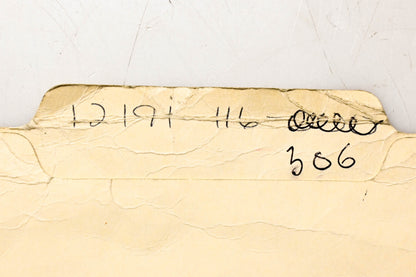 12191 116-
306